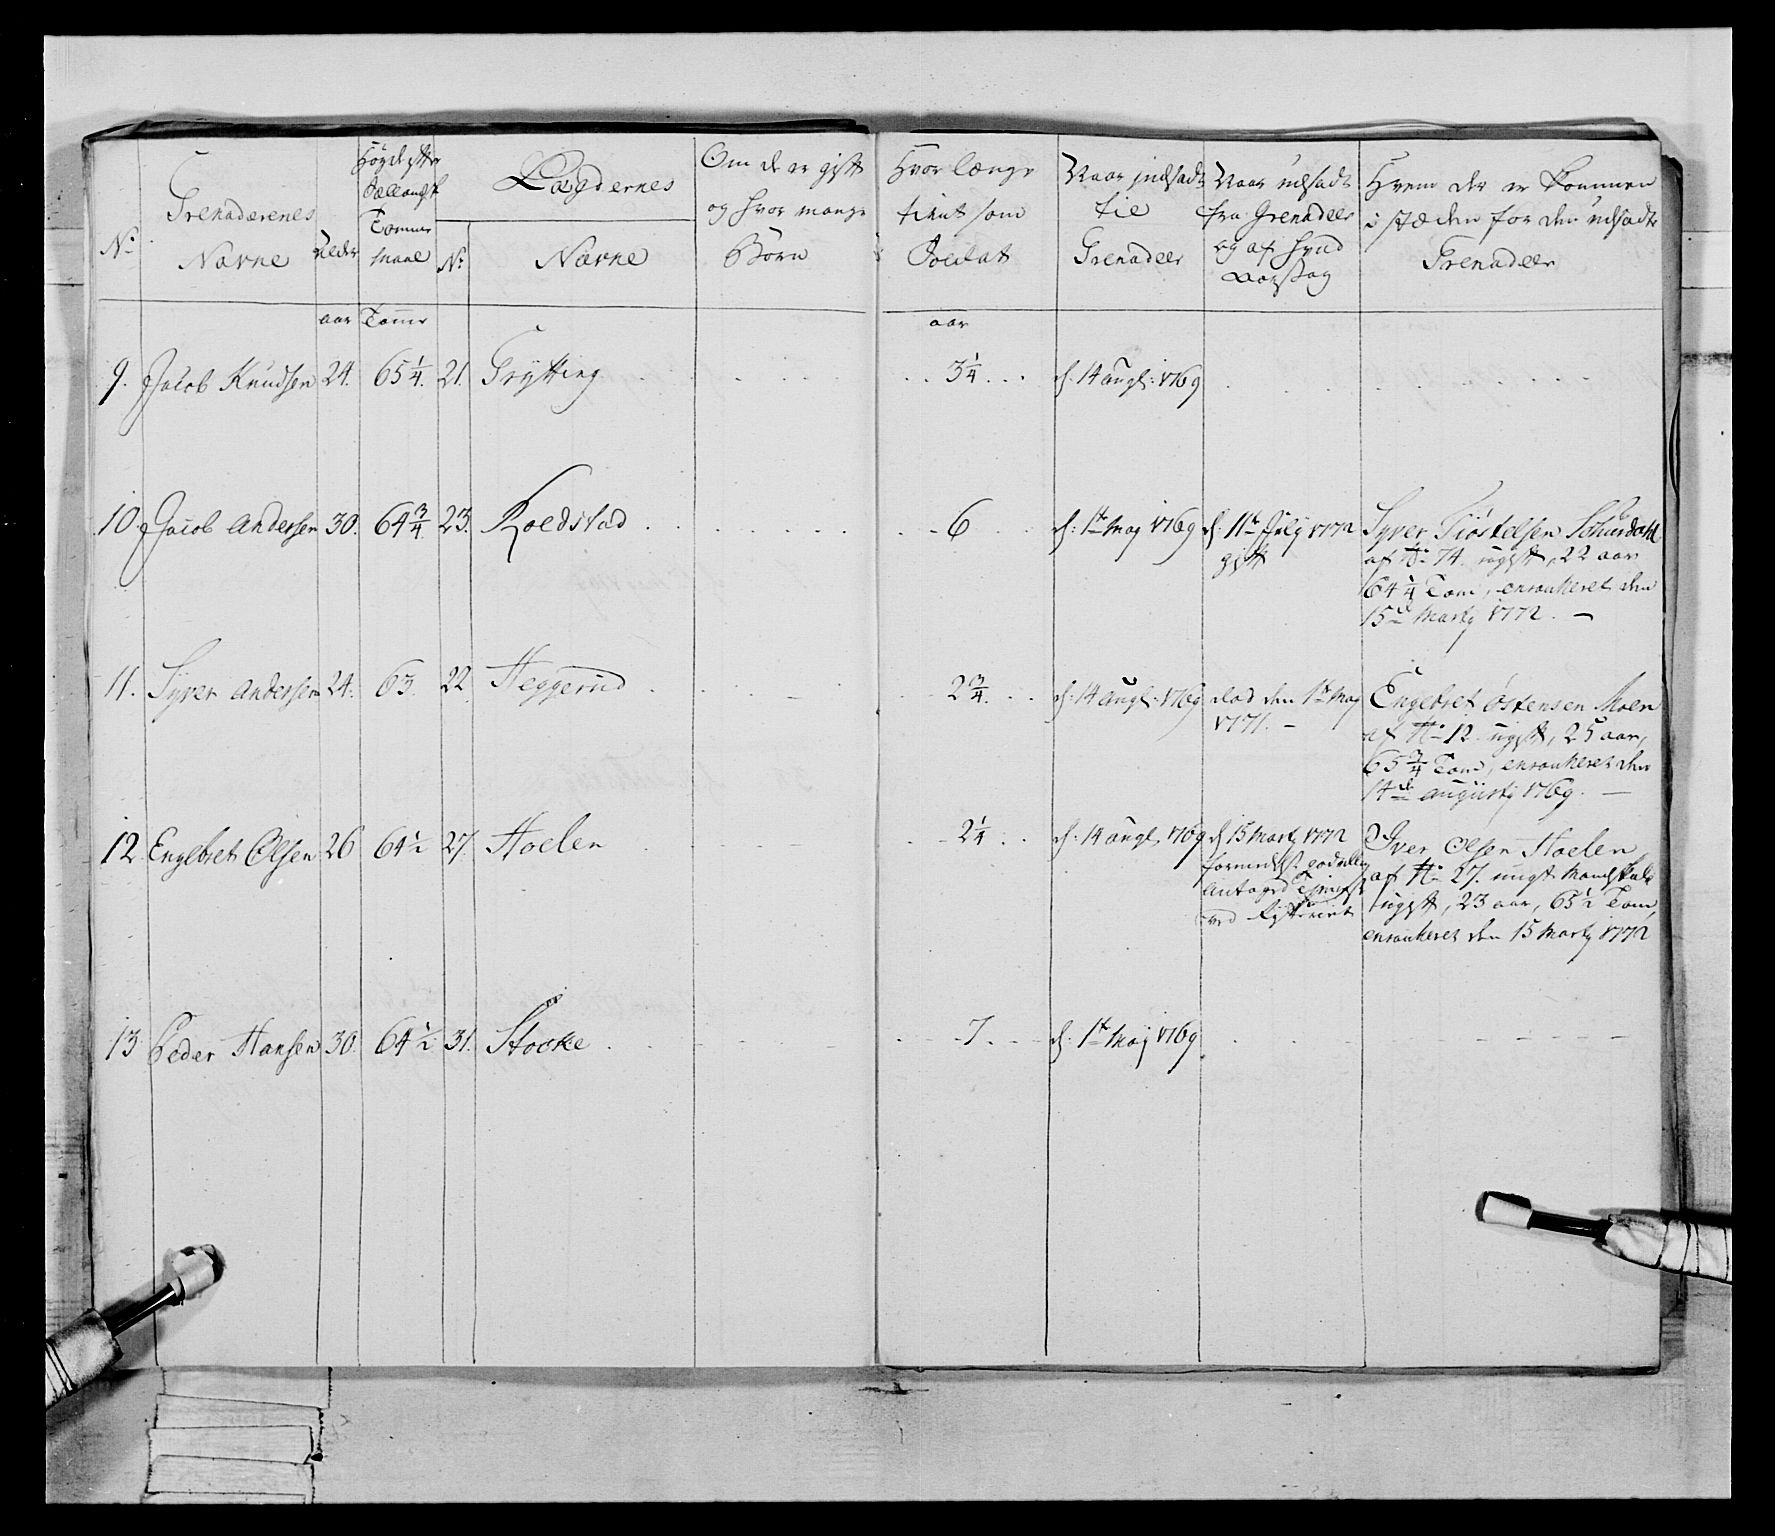 No
Grenadærenes
Navne
Alder
Høyde efter
Siællandsk
Tomme
Maal
Lægdernes
No
Navne
Om de er gift
og hvor mange
Børn
Hvor længe
tient som
Soldat
Naar indsadt
til
Grenadeer
Naar udsadt
fra Grenadeer
og af hvad
Aarsag
Hvem der er kommen
i stæden for den udsadte
Grenadeer
aar Tomr
aar
9. Jacob Knudsen 24. 65 1/4. 21. Grytting 3 1/4 d: 14 augl: 1769
10. Jacob Andersen 30. 64 3/4 23. Roedstad 6 d: 1te Maj 1769 d: 11te July 1772
gift
Syver Tiøstelsen
af No 74. ugift, 22 aar
64 1/4 Tom, enroulleret den
15de Marty 1772. –
11. Syver Andersen 24. 63. 22 Heggerud 2 3/4. d: 14 augl: 1769 død den 1te Maj
1771. –
Engebret Østensen Moen
af No 12. ugift, 25 aar,
65 3/4 Tom, enroulleret den
14de augusty 1769. –
12. Engebret Olsen 26 64 1/2 27. Hoelen 2 1/4 d: 14 augl. 1769 d 15 Marty 1772
formedelst godvillig
antaged
ved
Iver Olsen Hoelen
af No 27. ungt Mandskab
ugift, 23 aar, 65 1/2 Tom,
enroulleret den 15 Marty 1772
13 Peder Hansen 30. 64 1/2 31. Stocke 7. d: 1te Maj 1769